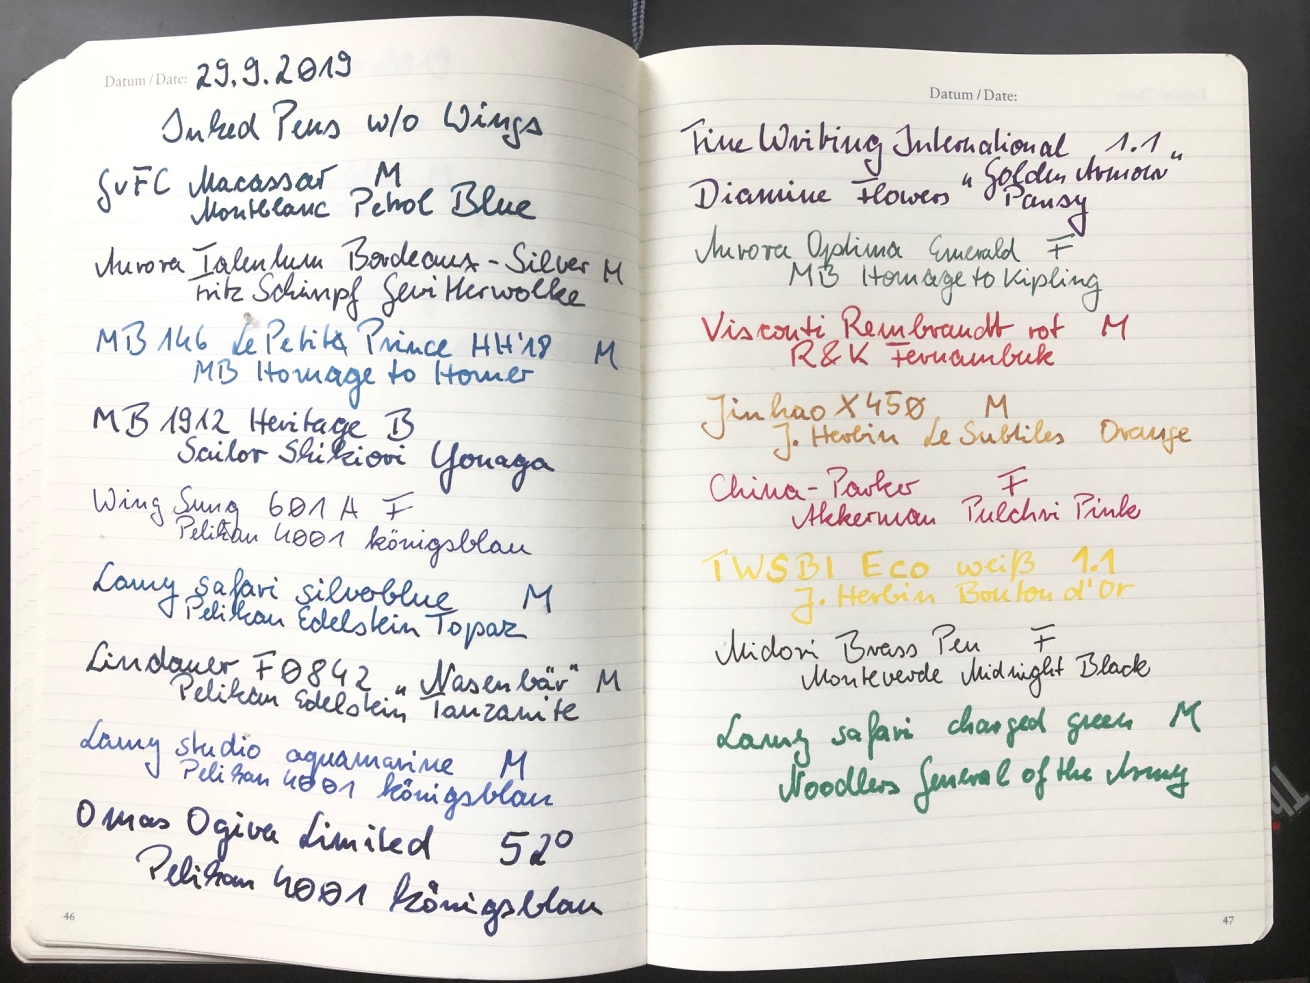 Datum / Date: 29.9.2019
Inked Pens w/o Wings
GvFC Macassar M
Montblanc Petrol Blue
Aurora Talentum Bordeaux-Silver M
Fritz Schimpf Gewitterwolke
MB 146 Le Petit Prince HH'18 M
MB Homage to Homer
MB 1912 Heritage B
Sailor Shikiori Yonaga
Wing Sung 601 A F
Pelikan 4001 königsblau
Lamy safari silvoblue M
Pelikan Edelstein Topaz
Lindauer F0842 „Nasenbär" M
Pelikan Edelstein Tanzanite
Lamy studio aquamarine M
Pelikan 4001 königsblau
Omas Ogiva Limited 52°
Pelikan 4001 königsblau
46
Datum / Date:
Fine Writing International 1.1
"Golden Armour"
Diamine Flowers Pansy
Aurora Optima Emerald F
MB Homage to Kipling
Visconti Rembrandt rot M
R&K Fernambuk
Jinhao X450 M
J. Herbin Le Subtiles Orange
China-Parker F
Akkerman Pulchri Pink
TWSBI Eco weiß 1.1
J. Herbin Bouton d'Or
Midori Brass Pen F
Monteverde Midnight Black
Lamy safari charged green M
Noodlers General of the Army
47